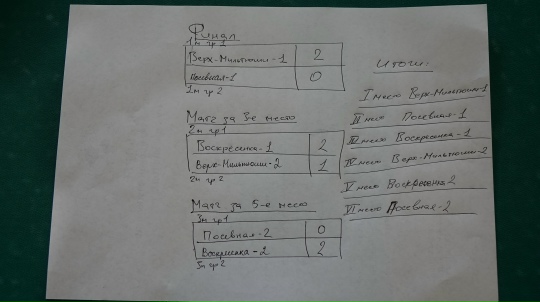 Финал
1м гр1
Верх-Мильтюши-1 2
Посевная-1 0
1м гр2
Матч за 3-е место
2м гр1
Воскресенка-1 2
Верх-Мильтюши-2 1
2м гр2
Матч за 5-е место
3м гр1
Посевная-2 0
Воскресенка-2 2
3м гр2
Итоги:
I место Верх-Мильтюши-1
II место Посевная-1
III место Воскресенка-1
IV место Верх-Мильтюши-2
V место Воскресенка 2
VI место Посевная-2